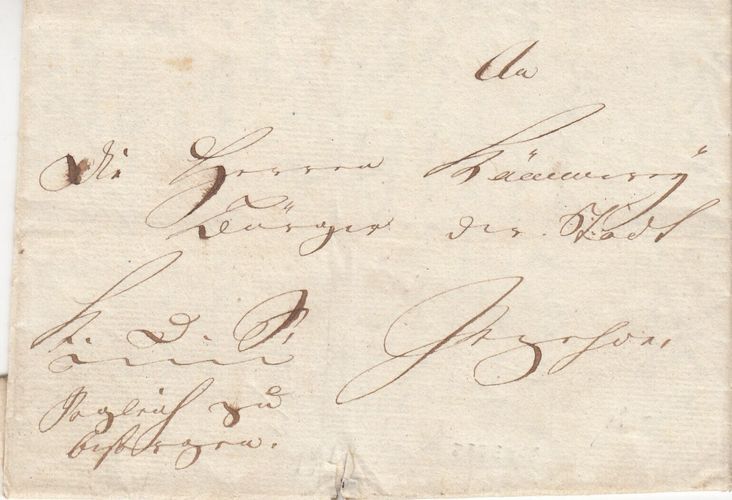 An
die Herren Kämmerey
Bürger der Stadt
K. D. S. Itzehoe.
Sogleich zu
besorgen.